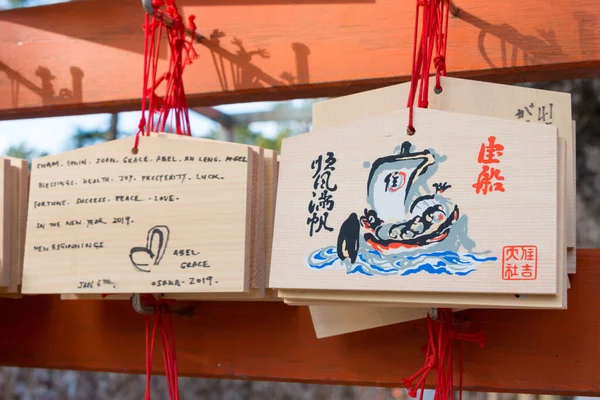 CHAM. EDWIN. JOAN. GRACE. ABEL. XU LENG. ANGEL
BLESSINGS. HEALTH. JOY. PROSPERITY. LUCK.
FORTUNE. SUCCESS. PEACE. LOVE.
IN THE NEW YEAR 2019.
NEW BEGINNINGS
ABEL
GRACE
JAN 6TH.
OSAKA - 2019.
宝船
順風満帆
住吉
大社